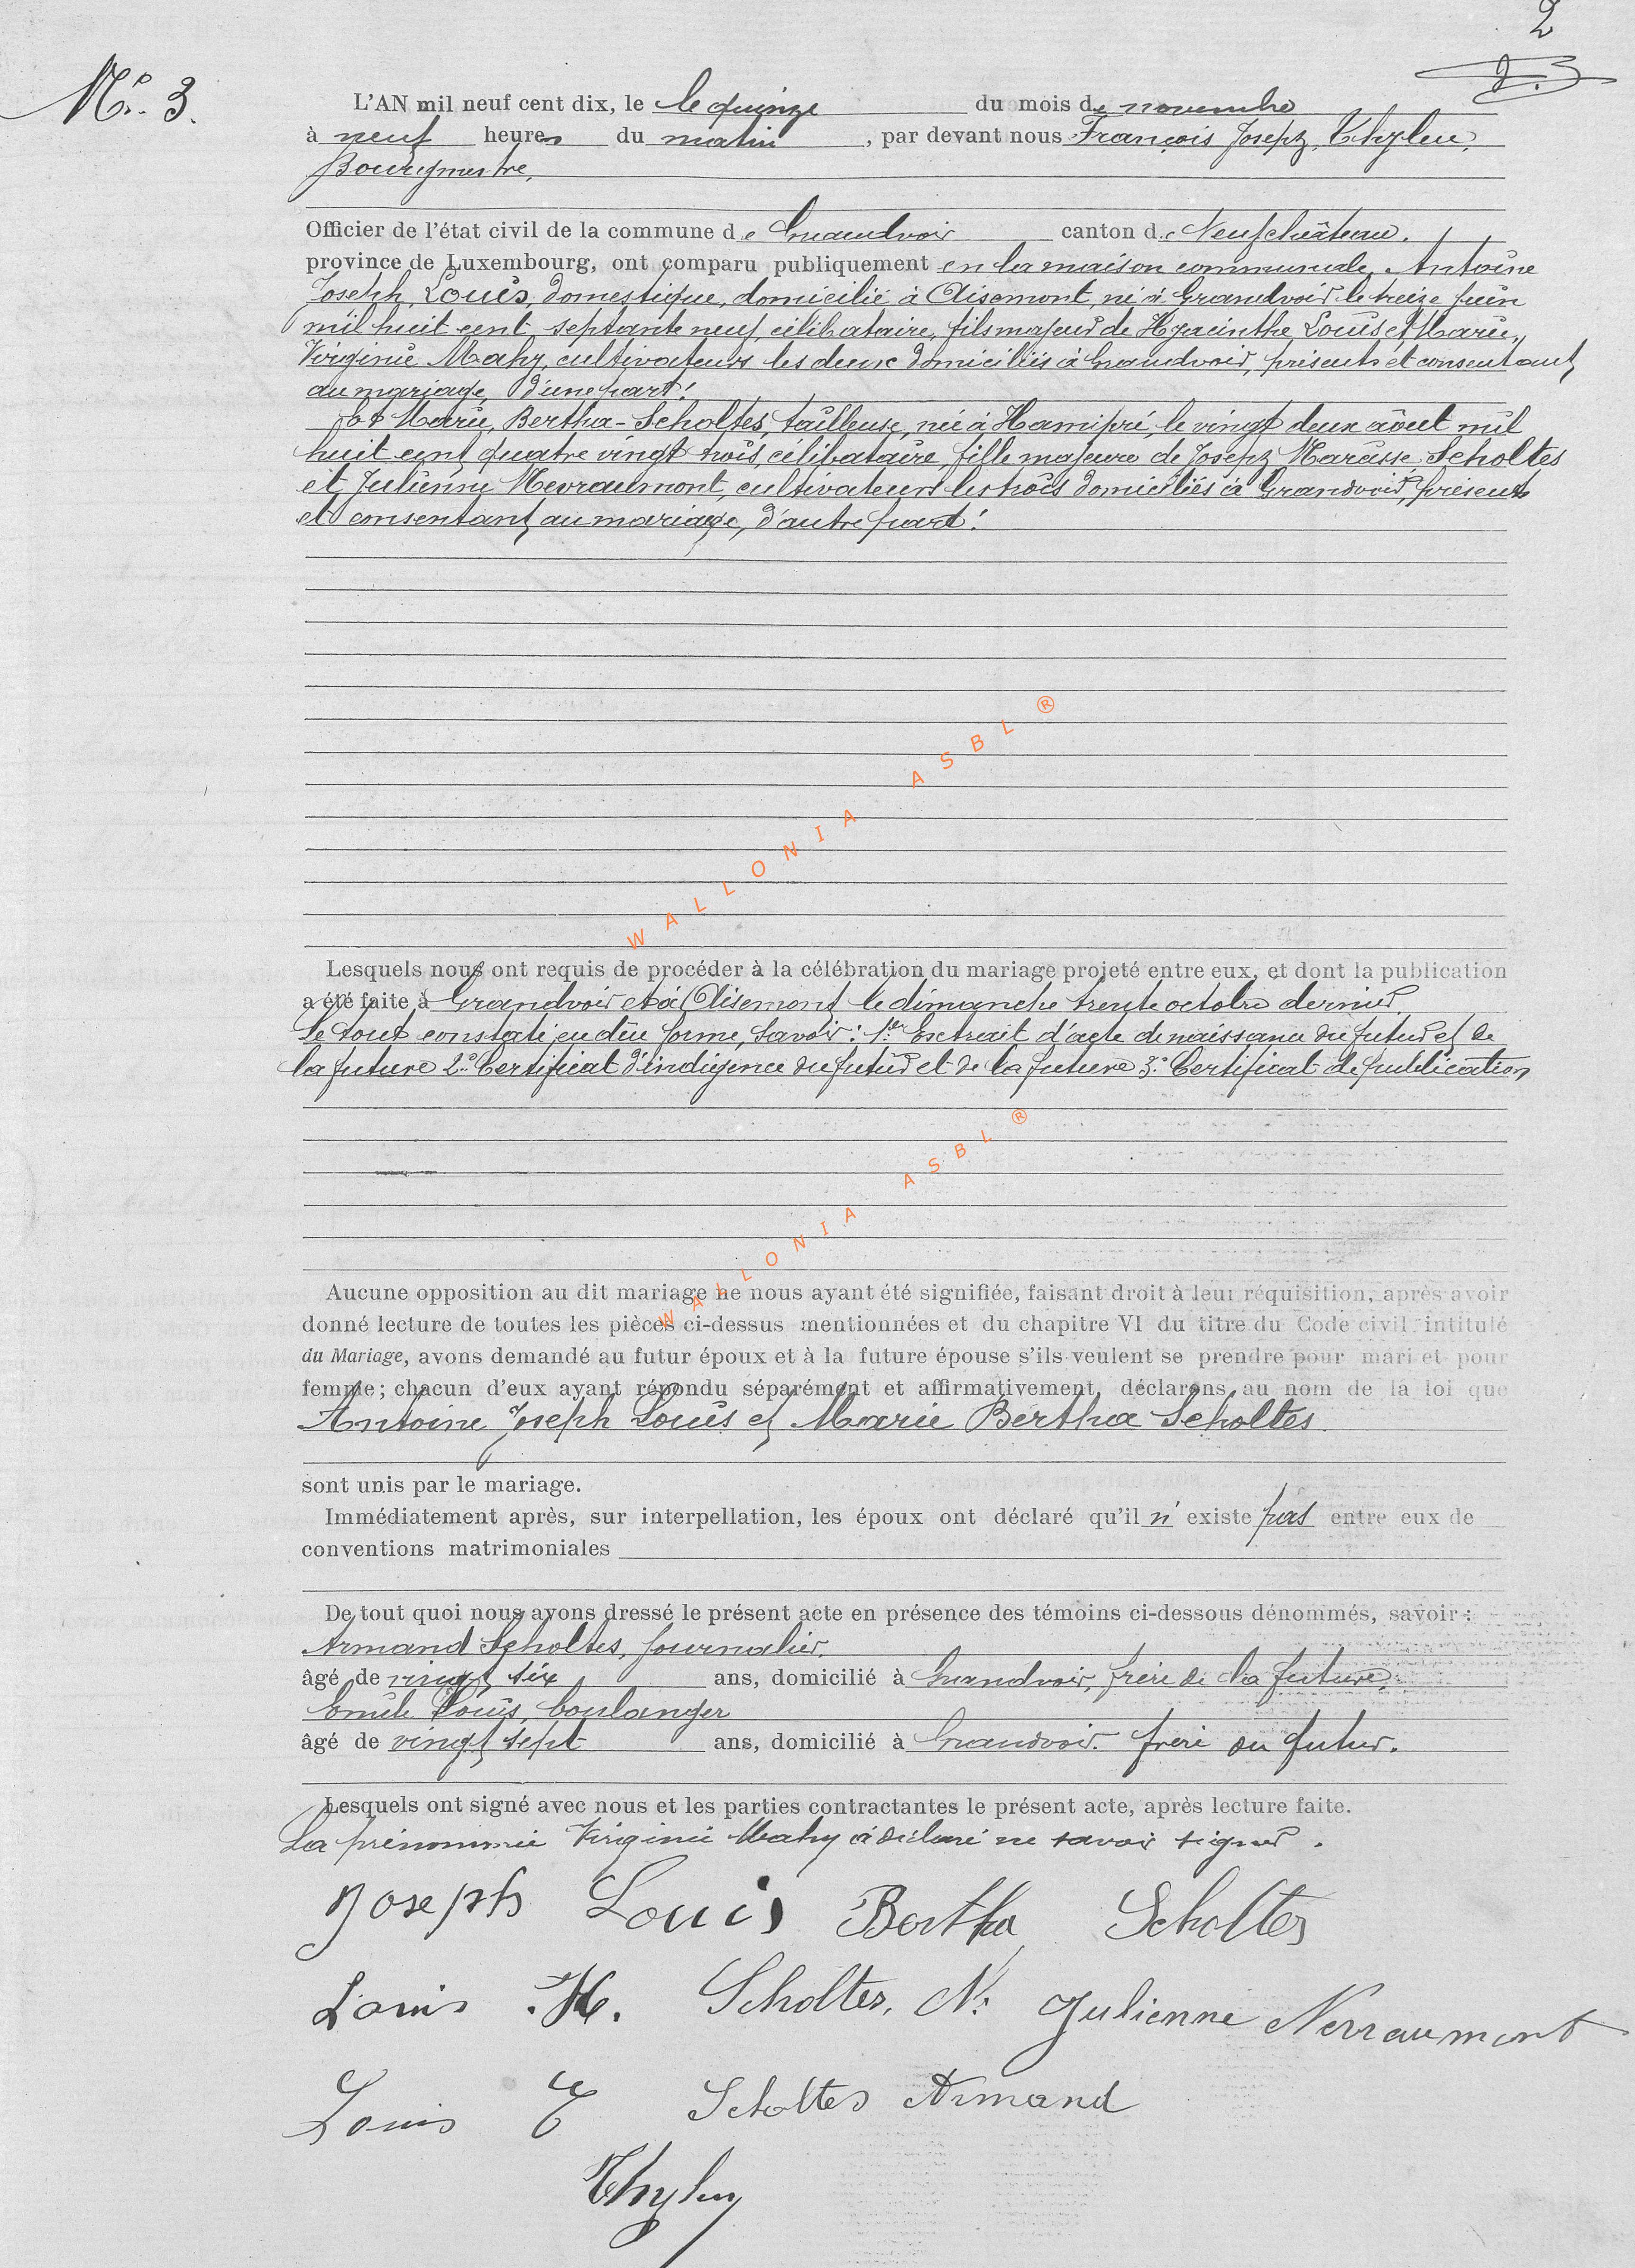 2
Nº. 3.
L'AN mil neuf cent dix, le le quinze du mois de novembre
à neuf heures du matin, par devant nous François Joseph
Bourgmestre,
Officier de l'état civil de la commune de Grandvoir canton de Neufchâteau.
province de Luxembourg, ont comparu publiquement en la maison communale, Antoine
Joseph Louis, domestique, domicilié à Aisemont, né à Grandvoir le treize juin
mil huit cent septante neuf, célibataire, fils majeur de Hyacinthe Louis et Marie,
Virginie Mahy, cultivateurs les deux domiciliés à Grandvoir, présents et consentant
au mariage, d'une part!
Et Marie, Bertha-Scholtes, tailleuse, née à Hamipré, le vingt deux août mil
huit cent quatre vingt trois, célibataire, fille majeure de Joseph Scholtes
et Julienne Nevraumont, cultivateurs les trois domiciliés à Grandvoir, présents
et consentant au mariage, d'autre part!
WALLONIA ASBL ®
Lesquels nous ont requis de procéder à la célébration du mariage projeté entre eux, et dont la publication
a été faite à Grandvoir et à Aisemont le dimanche trente octobre dernier.
le tout constaté en due forme, savoir: 1er Extrait d'acte de naissance du futur et de
la future 2º Certificat d'indigence du futur et de la future 3º Certificat de publication
WALLONIA ASBL ®
Aucune opposition au dit mariage ne nous ayant été signifiée, faisant droit à leur réquisition, après avoir
donné lecture de toutes les pièces ci-dessus mentionnées et du chapitre VI du titre du Code civil intitulé
du Mariage, avons demandé au futur époux et à la future épouse s'ils veulent se prendre pour mari et pour
femme; chacun d'eux ayant répondu séparément et affirmativement, déclarons au nom de la loi que
Antoine Joseph Louis et Marie Bertha Scholtes
sont unis par le mariage.
Immédiatement après, sur interpellation, les époux ont déclaré qu'il n' existe pas entre eux de
conventions matrimoniales
De tout quoi nous avons dressé le présent acte en présence des témoins ci-dessous dénommés, savoir:
Armand Scholtes, journalier,
âgé de vingt six ans, domicilié à Grandvoir, frère de la future,
Emile Louis, boulanger
âgé de vingt sept ans, domicilié à Grandvoir. frère du futur.
Lesquels ont signé avec nous et les parties contractantes le présent acte, après lecture faite.
La prénommée Virginie Mahy a déclaré ne savoir signer.
Joseph Louis Bertha Scholtes
Louis H. Scholtes, N. Julienne Nevraumont
Louis E Scholtes Armand